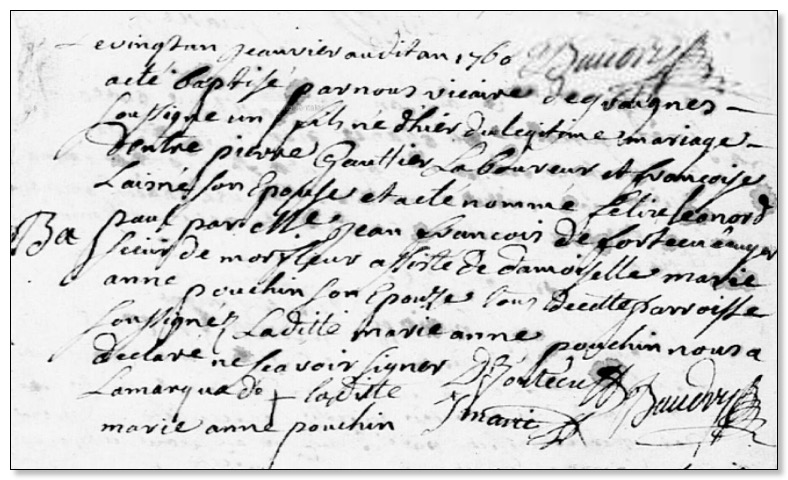 evingt un Janvier audit an 1760 Baudry
a eté baptisé par nous vicaire de graignes
soussigne un fils né d'hier du legitime mariage
d'entre pierre Gauttier Laboureur et francoise
Laisné son Epouse et a ete nommé felix leonord
Ba paul par Jean francois de fortecu ecuyer
sieur de assisté de damoiselle marie
anne pouchin son Epouze tous de cette parroisse
soussignéz Laditte marie anne pouchin nous a
declaré ne scavoir signer D fortecu Baudry
la marque de + laditte
marie anne pouchin